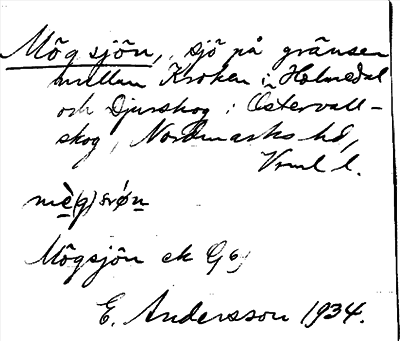 Mögsjön, sjö på gränsen
mellan Kroken i Holmedal
och Djurskog i Östervall-
skog, Nordmarks hd,
Vrml l.
Mögsjön ek
E. Andersson 1934.